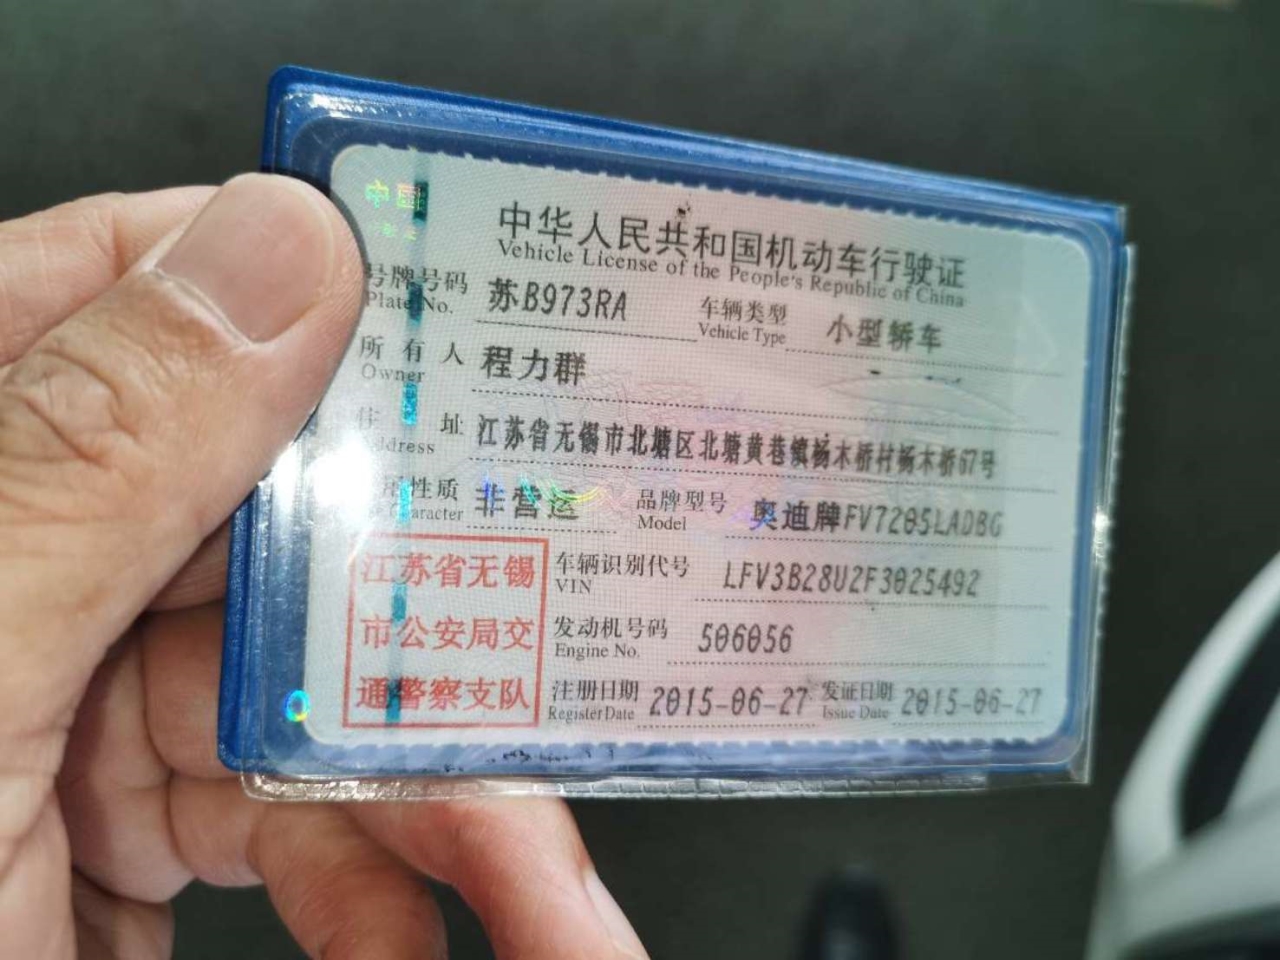 中国
中华人民共和国机动车行驶证
Vehicle License of the People's Republic of China
号牌号码 苏B973RA 车辆类型 小型轿车
Plate No. Vehicle Type
所有人 程力群
Owner
住址 江苏省无锡市北塘区北塘黄巷镇杨木桥村杨木桥67号
Address
性质 非营运 品牌型号 奥迪牌FV7205LADBG
Character Model
江苏省无锡
市公安局交
通警察支队
车辆识别代号 LFV3B28U2F3025492
VIN
发动机号码 506056
Engine No.
注册日期 2015-06-27 发证日期 2015-06-27
Register Date Issue Date